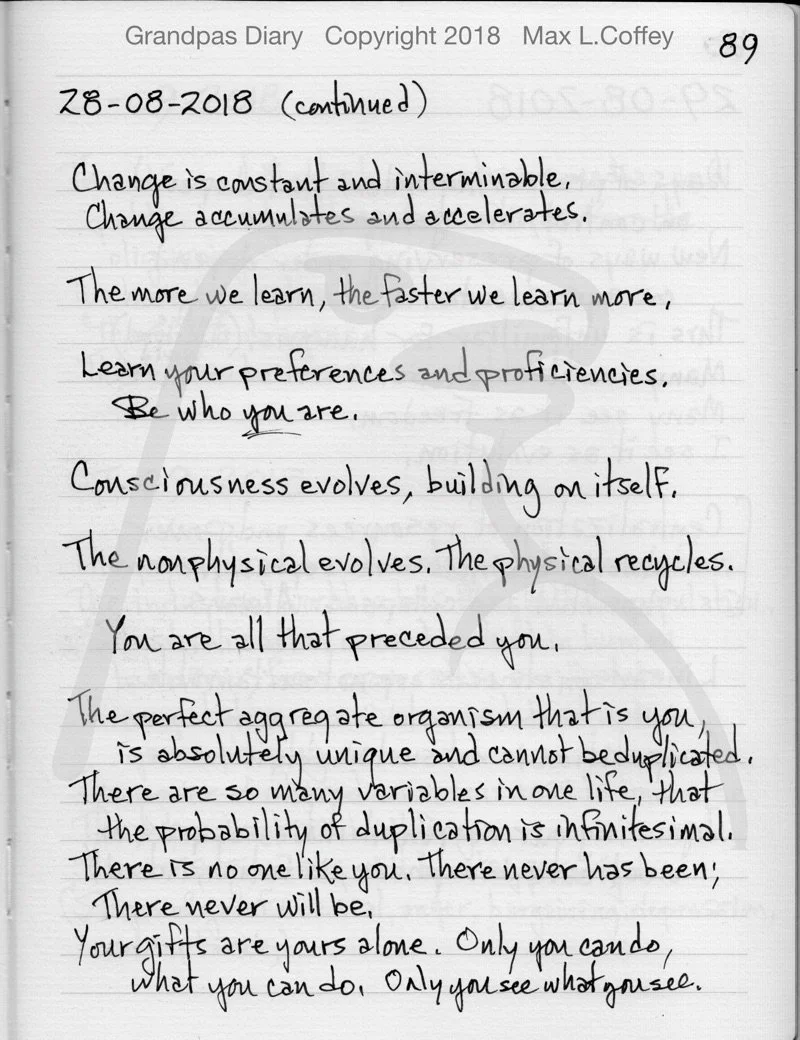 Grandpas Diary Copyright 2018 Max L.Coffey
89
28-08-2018 (continued)
Change is constant and interminable.
Change accumulates and accelerates.
The more we learn, the faster we learn more.
Learn your preferences and proficiencies.
Be who you are.
Consciousness evolves, building on itself.
The nonphysical evolves. The physical recycles.
You are all that preceded you.
The perfect aggregate organism that is you,
is absolutely unique and cannot be duplicated.
There are so many variables in one life, that
the probability of duplication is infinitesimal.
There is no one like you. There never has been;
There never will be.
Your gifts are yours alone. Only you can do,
what you can do. Only you see what you see.